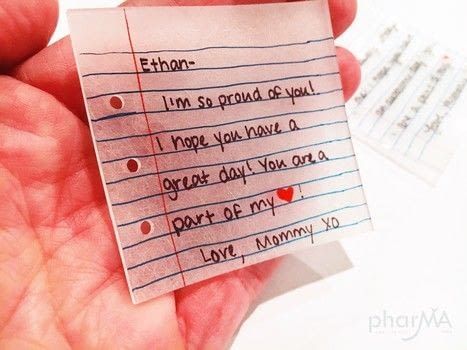 Ethan-
I'm so proud of you!
I hope you have a
great day! You are a
part of my ❤!
Love, Mommy XO
pharMA